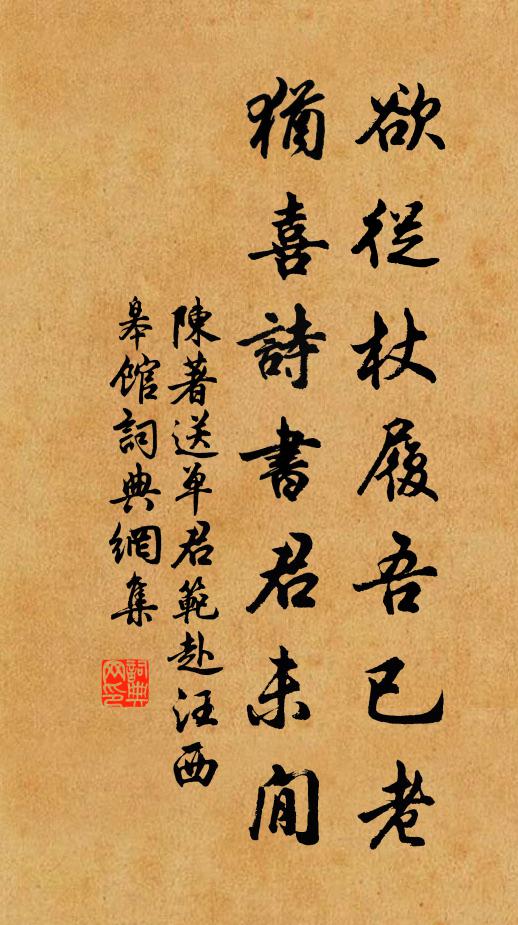 欲從杖履吾已老
猶喜詩書君未閒
陳著送单君範赴汪西
皋館詞典網集
詞典
网印